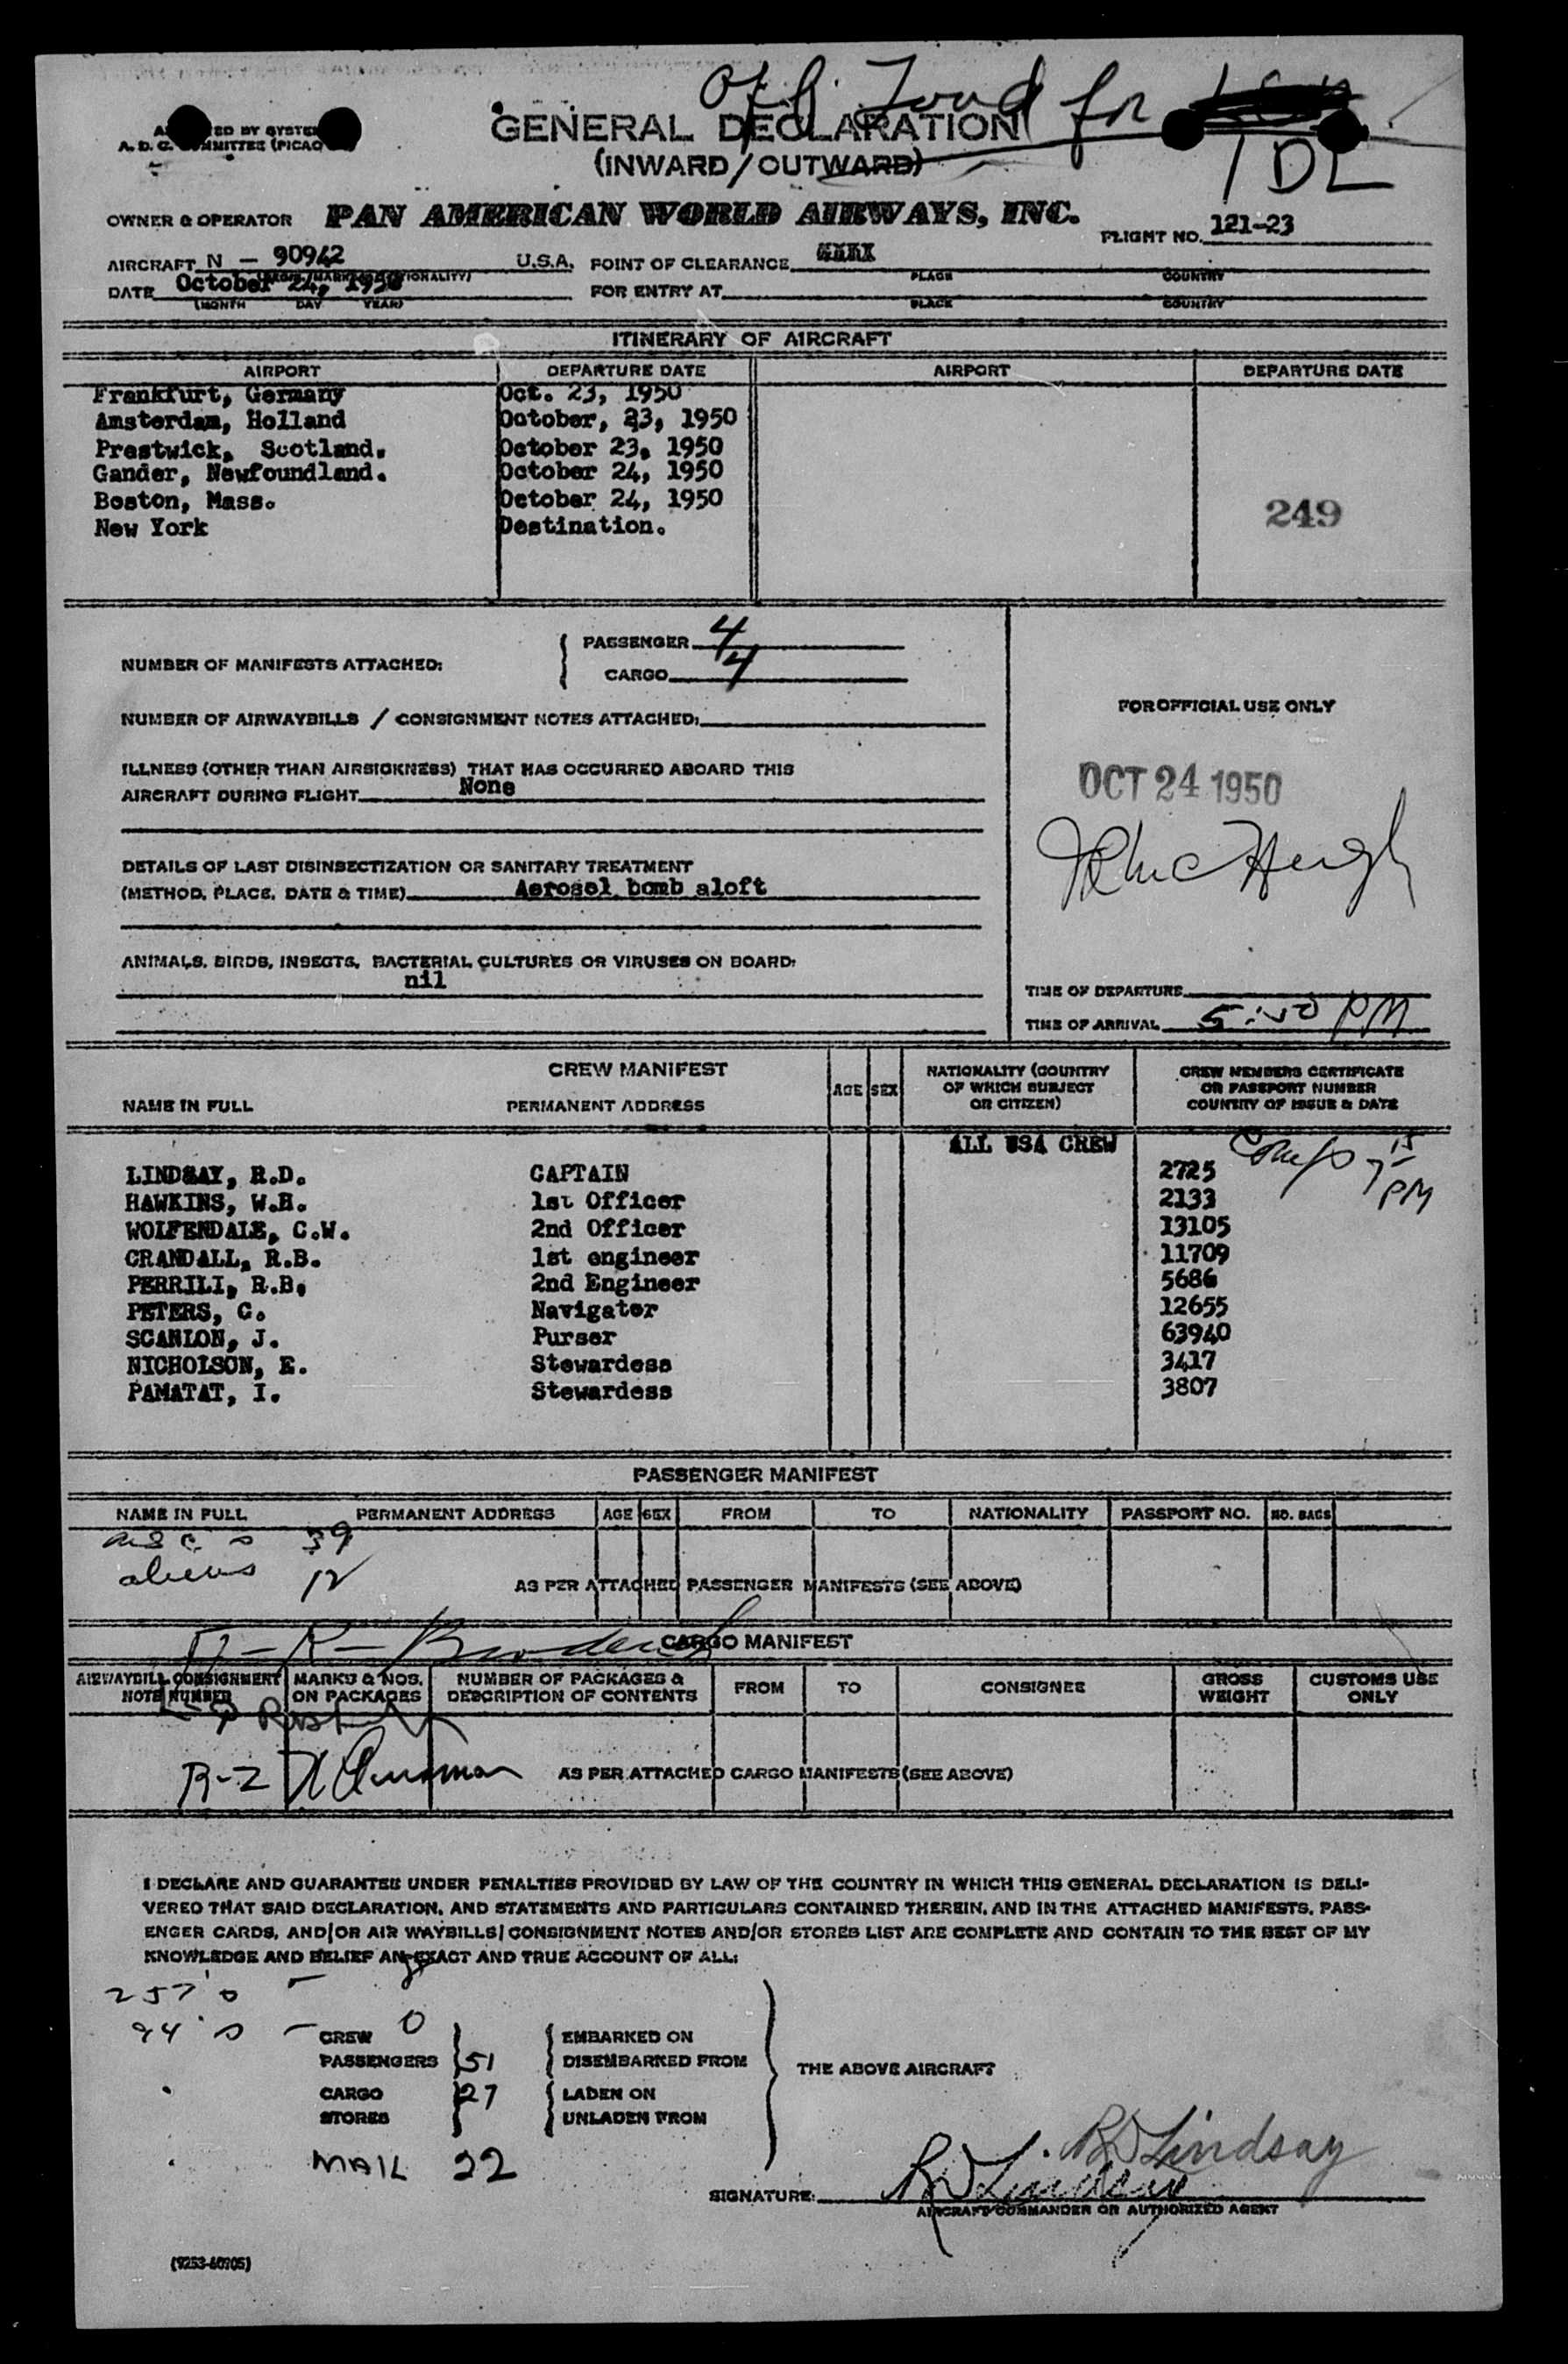 GENERAL DECLARATION
(INWARD/OUTWARD)
for
IDL
A. D. C. COMMITTEE (PICAO
OWNER & OPERATOR PAN AMERICAN WORLD AIRWAYS, INC.
FLIGHT NO. 121-23
AIRCRAFT N - 90942 U.S.A. POINT OF CLEARANCE
PLACE COUNTRY
DATE October 24, 1950 FOR ENTRY AT
(MONTH DAY YEAR) PLACE COUNTRY
ITINERARY OF AIRCRAFT
AIRPORT DEPARTURE DATE AIRPORT DEPARTURE DATE
Frankfurt, Germany Oct. 23, 1950
Amsterdam, Holland October, 23, 1950
Prestwick, Scotland. October 23, 1950
Gander, Newfoundland. October 24, 1950
Boston, Mass. October 24, 1950
249
New York Destination.
NUMBER OF MANIFESTS ATTACHED: PASSENGER 4
CARGO 4
FOR OFFICIAL USE ONLY
NUMBER OF AIRWAYBILLS / CONSIGNMENT NOTES ATTACHED:
ILLNESS (OTHER THAN AIRSICKNESS) THAT HAS OCCURRED ABOARD THIS
AIRCRAFT DURING FLIGHT None
OCT 24 1950
DETAILS OF LAST DISINSECTIZATION OR SANITARY TREATMENT
(METHOD, PLACE, DATE & TIME) Aerosol bomb aloft
ANIMALS, BIRDS, INSECTS, BACTERIAL CULTURES OR VIRUSES ON BOARD:
nil
TIME OF DEPARTURE
TIME OF ARRIVAL 5:50 PM
CREW MANIFEST
NAME IN FULL PERMANENT ADDRESS AGE SEX NATIONALITY (COUNTRY OF WHICH SUBJECT OR CITIZEN) CREW MEMBERS CERTIFICATE OR PASSPORT NUMBER COUNTRY OF ISSUE & DATE
ALL USA CREW
LINDSAY, R.D. CAPTAIN 2725
HAWKINS, W.H. 1st Officer 2133 PM
WOLFENDALE, C.W. 2nd Officer 13105
CRANDALL, R.B. 1st engineer 11709
PERRILI, R.B. 2nd Engineer 5686
PETERS, C. Navigator 12655
SCANLON, J. Purser 63940
NICHOLSON, E. Stewardess 3417
PAMATAT, I. Stewardess 3807
PASSENGER MANIFEST
NAME IN FULL PERMANENT ADDRESS AGE SEX FROM TO NATIONALITY PASSPORT NO. NO. BAGS
39
aliens 12
AS PER ATTACHED PASSENGER MANIFESTS (SEE ABOVE)
CARGO MANIFEST
AIRWAYBILL CONSIGNMENT NOTE NUMBER MARKS & NOS. ON PACKAGES NUMBER OF PACKAGES & DESCRIPTION OF CONTENTS FROM TO CONSIGNEE GROSS WEIGHT CUSTOMS USE ONLY
AS PER ATTACHED CARGO MANIFESTS (SEE ABOVE)
I DECLARE AND GUARANTEE UNDER PENALTIES PROVIDED BY LAW OF THE COUNTRY IN WHICH THIS GENERAL DECLARATION IS DELI-
VERED THAT SAID DECLARATION, AND STATEMENTS AND PARTICULARS CONTAINED THEREIN, AND IN THE ATTACHED MANIFESTS, PASS-
ENGER CARDS, AND/OR AIR WAYBILLS/CONSIGNMENT NOTES AND/OR STORES LIST ARE COMPLETE AND CONTAIN TO THE BEST OF MY
KNOWLEDGE AND BELIEF AN EXACT AND TRUE ACCOUNT OF ALL:
CREW 0 EMBARKED ON
PASSENGERS 51 DISEMBARKED FROM
THE ABOVE AIRCRAFT
CARGO 27 LADEN ON
STORES UNLADEN FROM
MAIL 22
RD Lindsay
SIGNATURE: RD Lindsay
AIRCRAFT COMMANDER OR AUTHORIZED AGENT